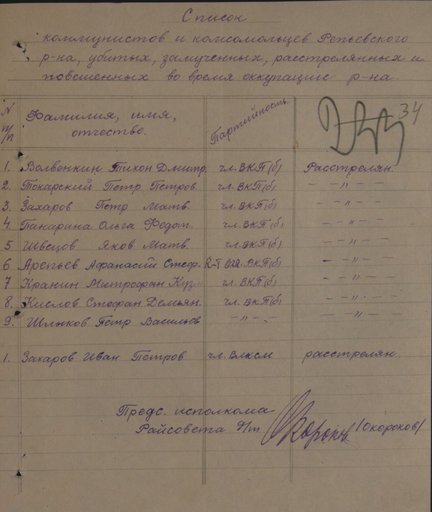 Список
коммунистов и комсомольцев Репьевского
р-на, убитых, замученных, расстрелянных и
повешенных во время оккупации р-на.
N п/п Фамилия, имя, отчество. Партийность 34
1. Волвенкин Тихон Дмитр. чл. ВКП(б) Расстрелян.
2. Токарский Петр Петров чл. ВКП(б) – " –
3. Захаров Петр Матв. чл. ВКП(б) – " –
4. Панарина Ольга Федот. чл. ВКП(б) – " –
5 Швецов Яков Матв. чл. ВКП(б) – " –
6 Арепьев Афанасий Стеф. К-т ВКП(б) – " –
7 Кранин Митрофан Куз. чл. ВКП(б) – " –
8. Кислов Стефан Демьян. чл. ВКП(б) – " –
9. Шляков Петр Васильев – " – – " –
1. Захаров Иван Петров чл. ВЛКСМ расстрелян.
Предс. исполкома
Райсовета д/т (Скорохов)